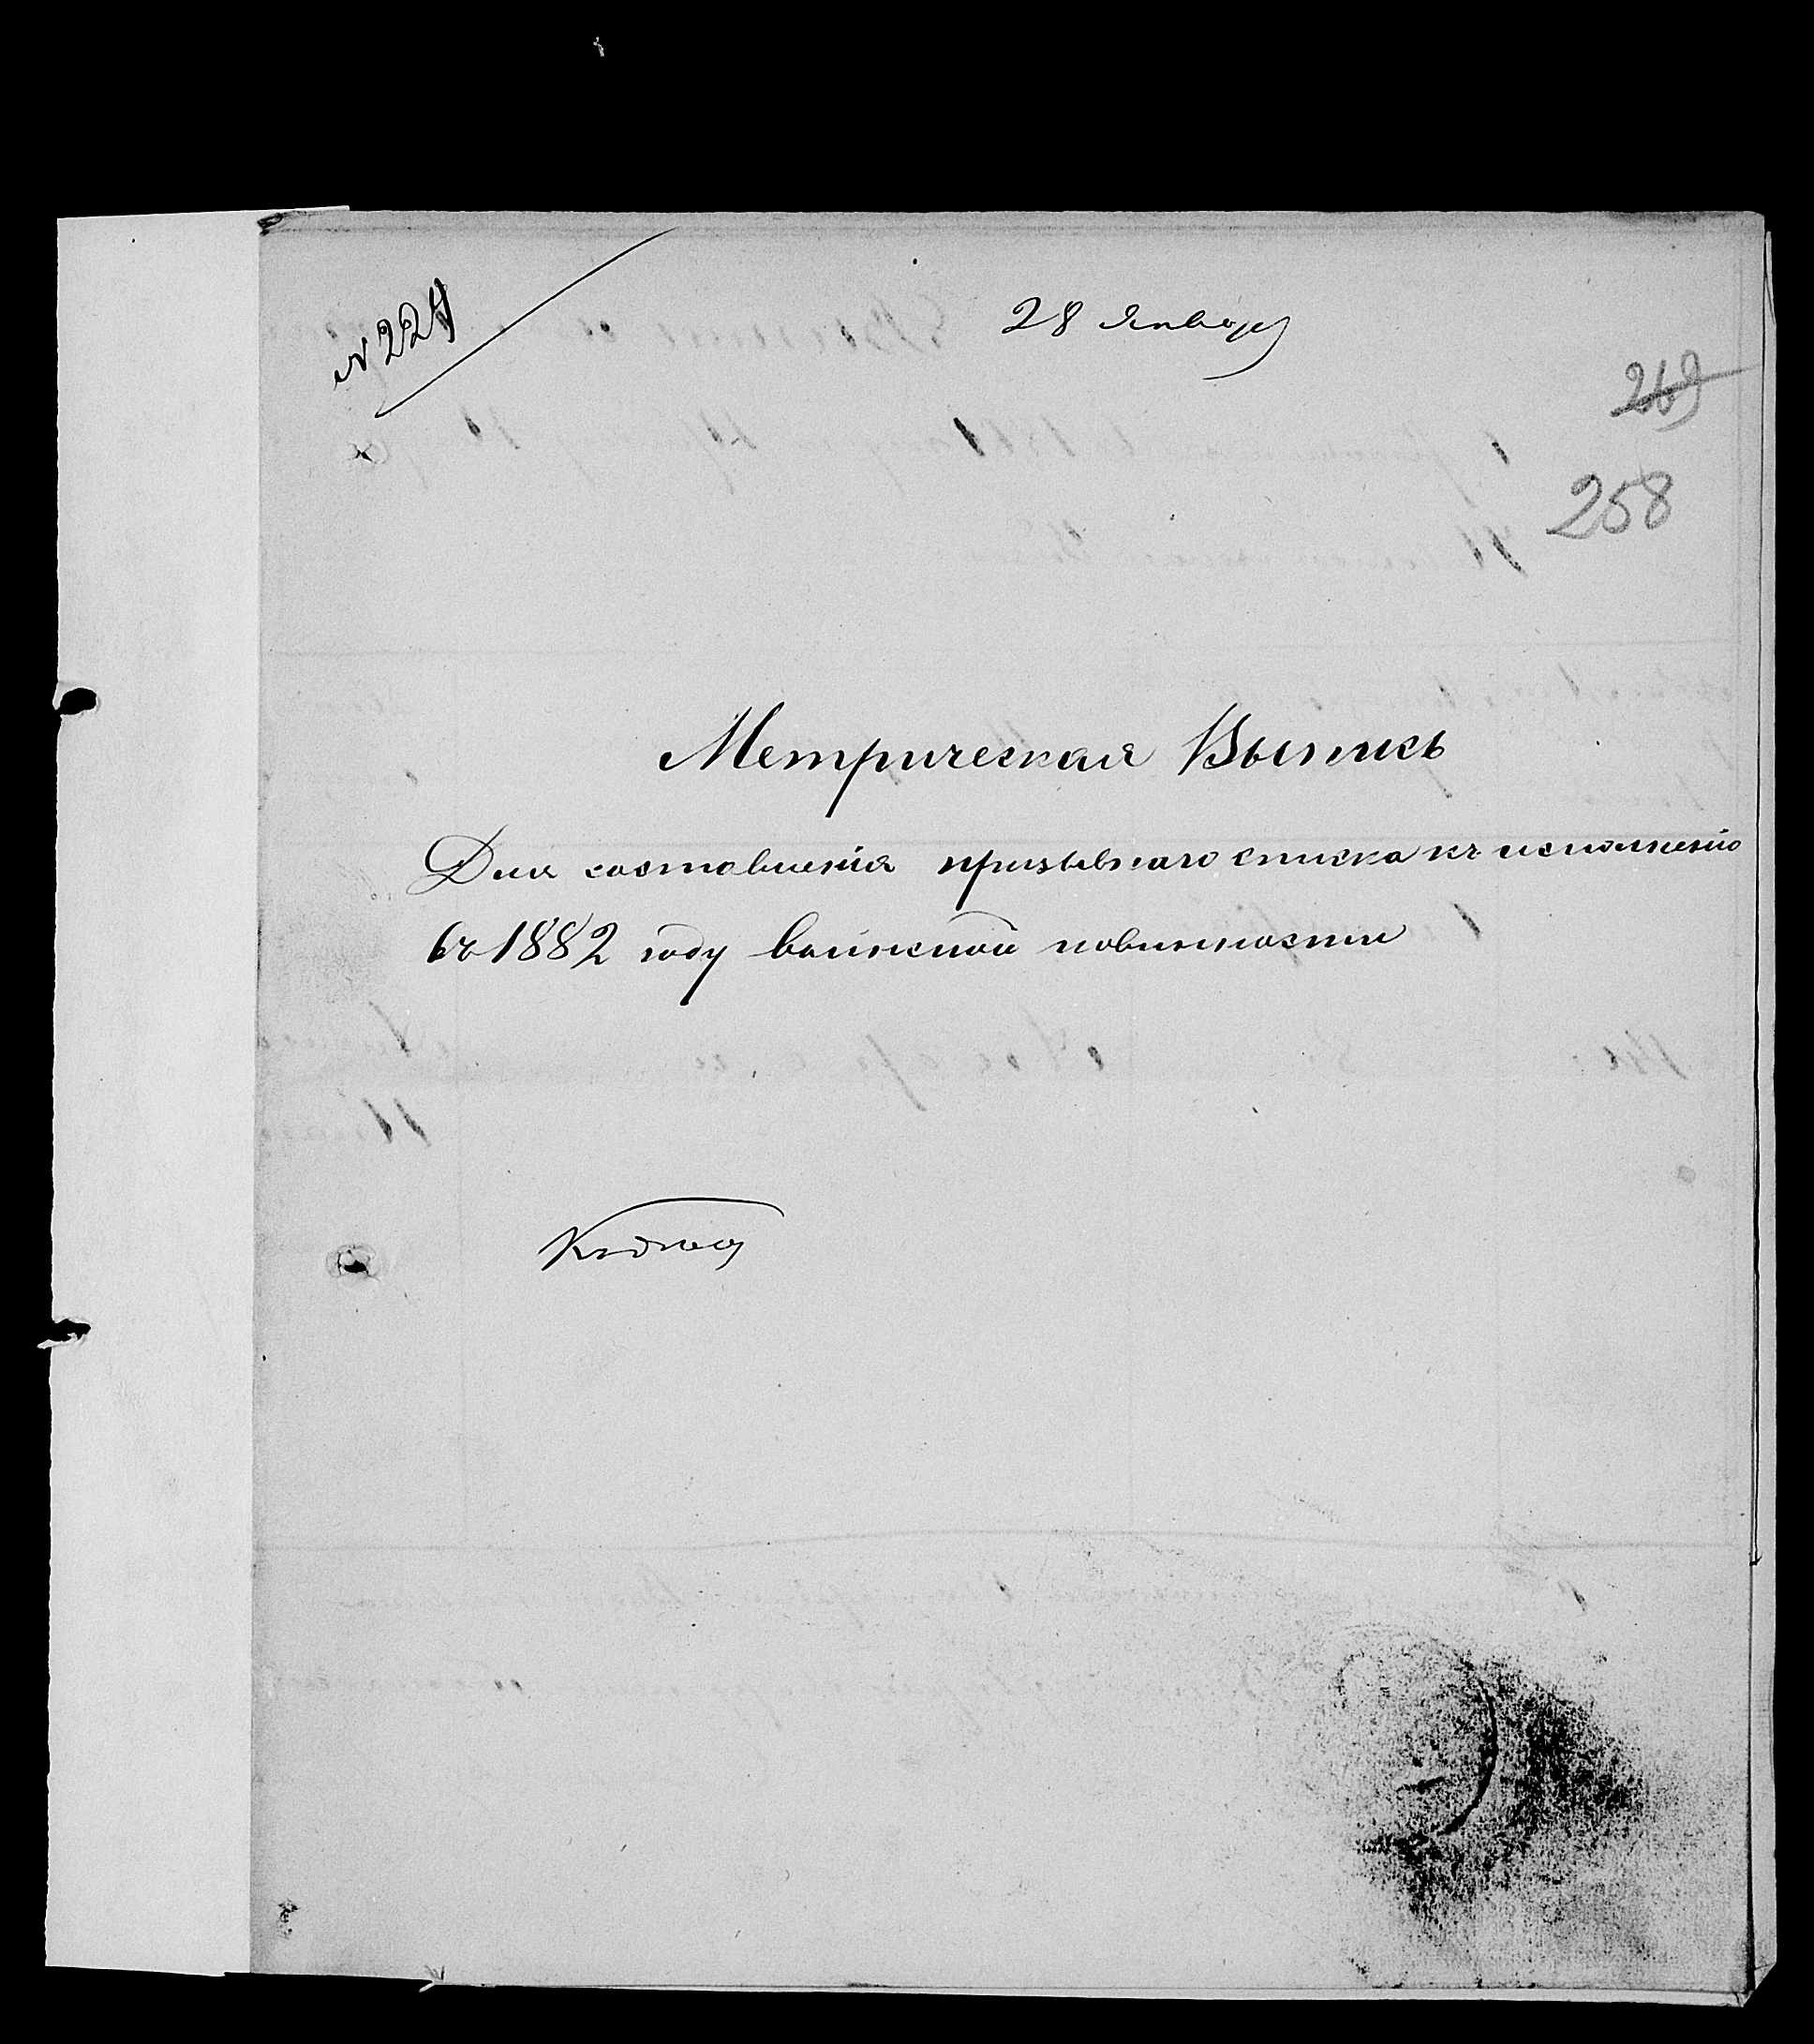 № 224
28 Января
269
258
Метрическая Выпись
Для составленія призывнаго списка къ исполненію
въ 1882 году воинской повинности